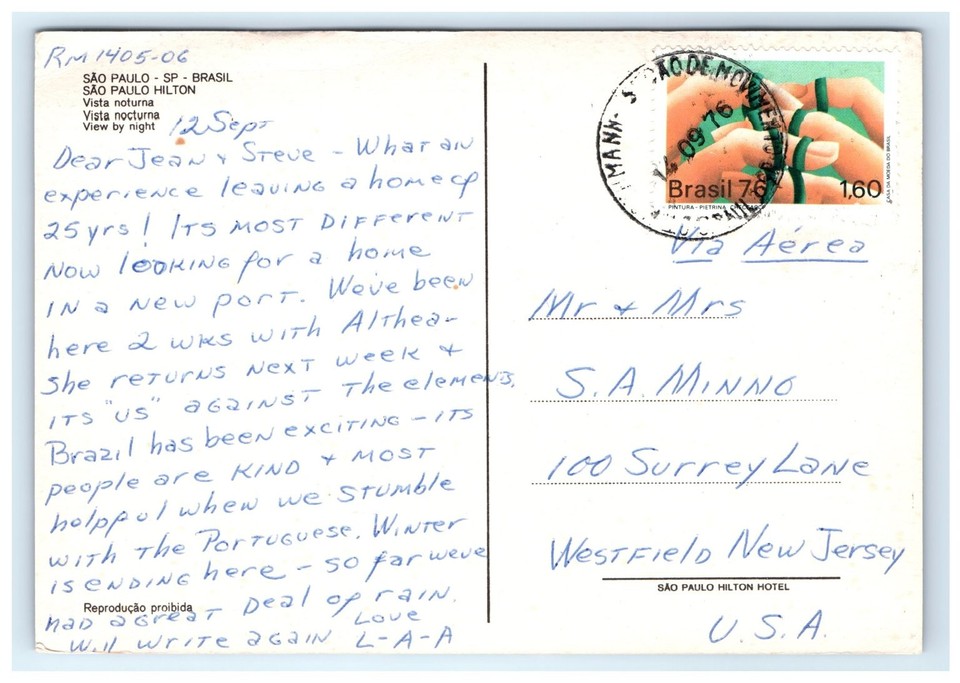 RM 1405-06
SÃO PAULO - SP - BRASIL
SÃO PAULO HILTON
Vista noturna
Vista nocturna
View by night
12 Sept
Dear Jean & Steve - What an
experience leaving a home of
25 yrs! Its most different
now looking for a home
in a new port. Weve been
here 2 wks with Althea-
She returns next week &
its "us" against the elements.
Brazil has been exciting - its
people are kind & most
helpful when we stumble
with the Portuguese. Winter
is ending here - so far weve
had a great deal of rain.
Will write again Love
L-A-A
Reprodução proibida
14 09 76
Brasil 76 1,60
CASA DA MOEDA DO BRASIL
Via Aérea
Mr & Mrs
S.A. Minno
100 Surrey Lane
Westfield New Jersey
SÃO PAULO HILTON HOTEL
U.S.A.